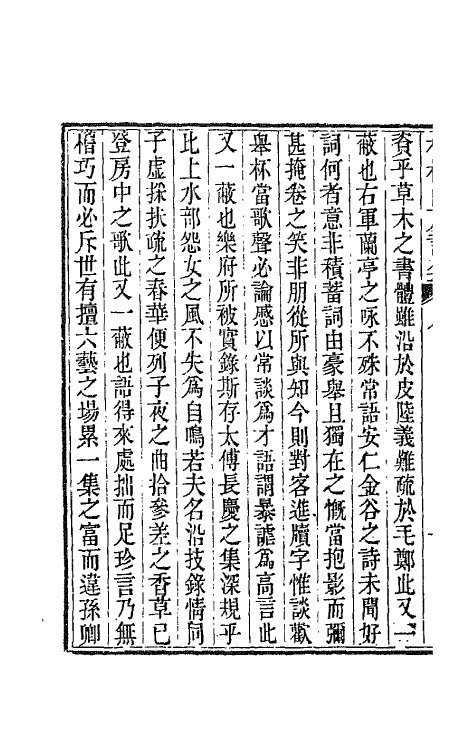 資乎草木之書體雖沿於皮陸義難疏於毛鄭此又一
蔽也右軍蘭亭之咏不殊常語安仁金谷之詩未聞好
詞何者意非積蓄詞由豪舉且獨在之慨當抱影而彌
甚掩卷之笑非朋從所與知今則對客進牘字惟談歡
舉杯當歌聲必論感以常談為才語謂暴謔為高言此
又一蔽也樂府所被實錄斯存太傅長慶之集深規乎
比上水部怨女之風不失為自鳴若夫名沿技錄情同
子虛採扶疏之春華便列子夜之曲拾參差之香草已
登房中之歌此又一蔽也語得來處拙而足珍言乃無
稽巧而必斥世有擅六藝之場累一集之富而違孫卿